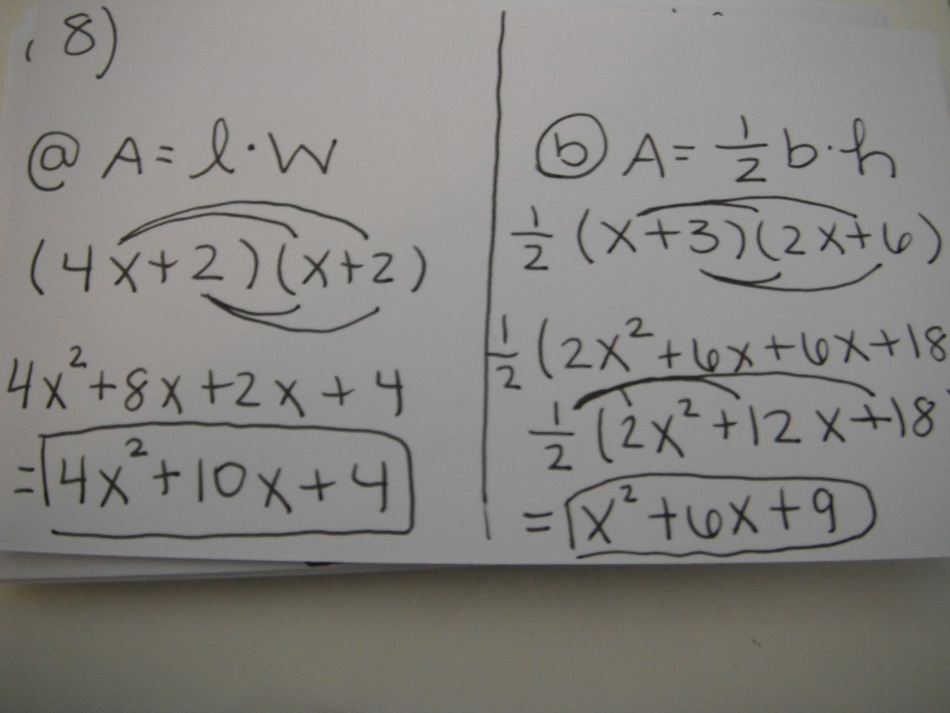 , 8)
ⓐ A = l · W
(4x+2)(x+2)
4x²+8x+2x+4
= 4x²+10x+4
ⓑ A = 1/2 b·h
1/2 (x+3)(2x+6)
1/2 (2x²+6x+6x+18
1/2 (2x²+12x+18
= x²+6x+9